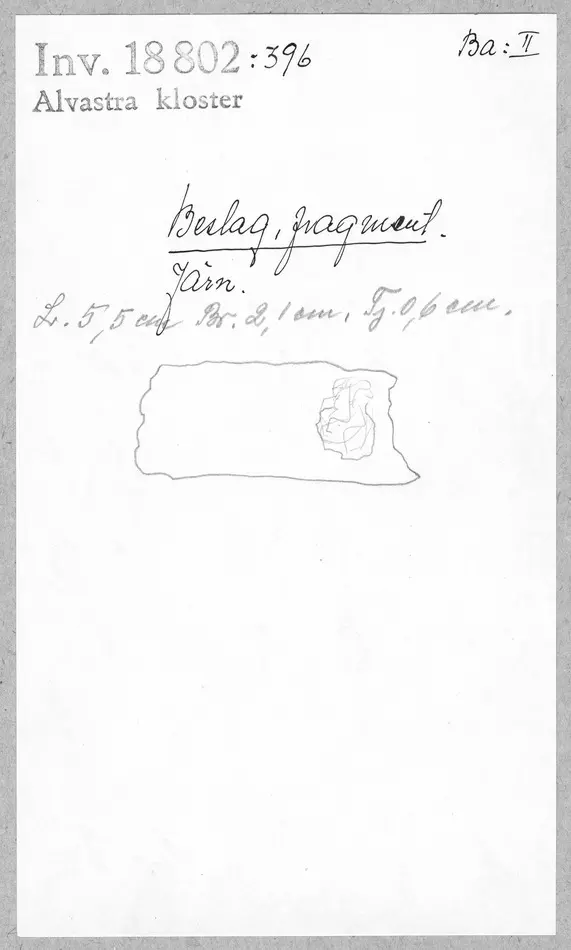 Inv. 18802:396
Ba: II
Alvastra kloster
Beslag, fragment.
Järn.
Lr. 5,5 cm Br. 2,1 cm, Tj. 0,6 cm.